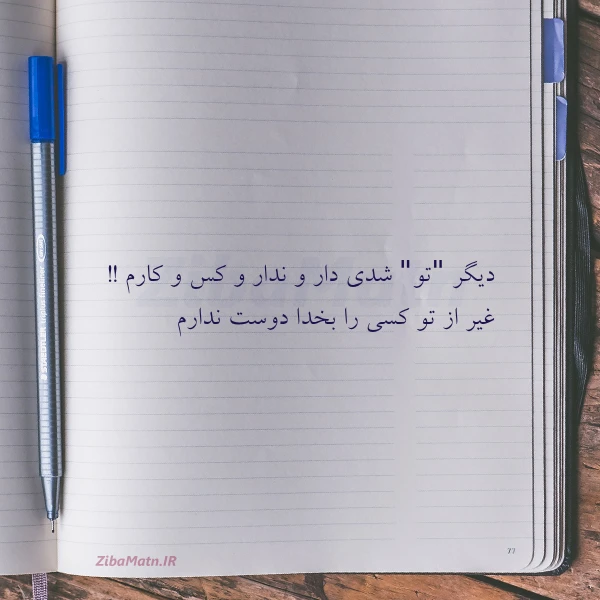 دیگر "تو" شدی دار و ندار و کس و کارم !!
غیر از تو کسی را بخدا دوست ندارم
ZibaMatn.IR
77